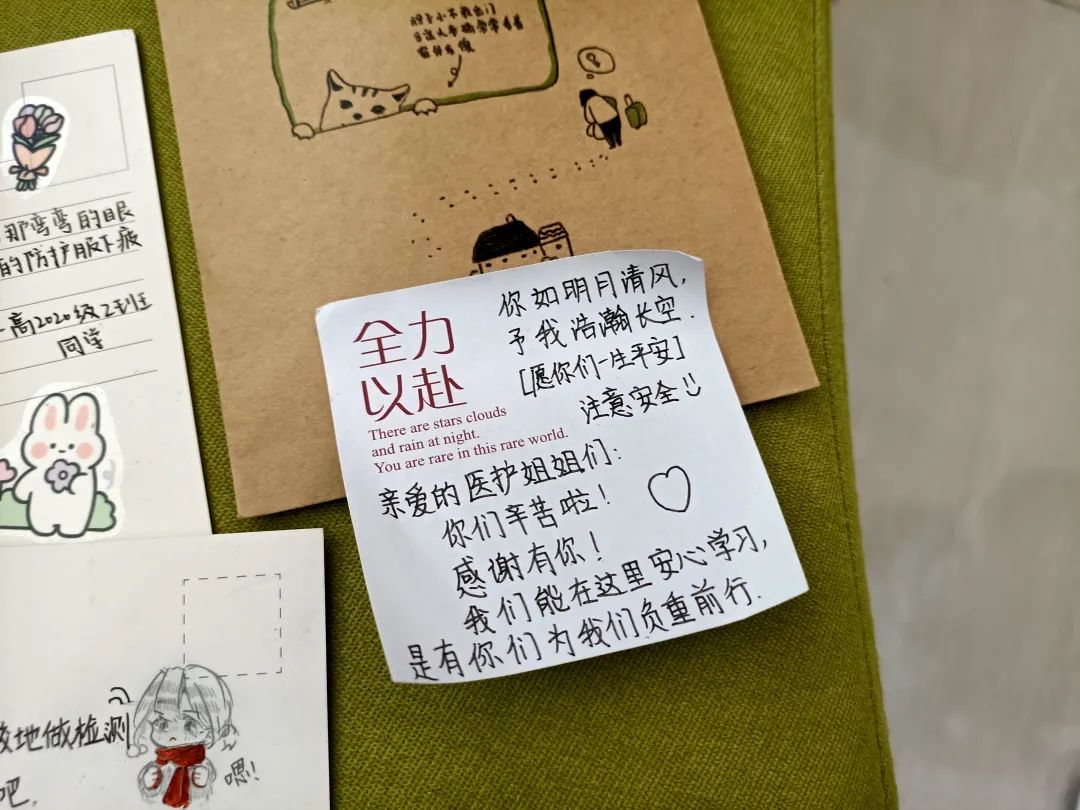 胆子小不敢出门
那弯弯的眼
的防护服下疲
高2020级2班
同学
全力
以赴
There are stars clouds
and rain at night.
You are rare in this rare world.
你如明月清风,
予我浩瀚长空.
[愿你们一生平安]
注意安全
亲爱的医护姐姐们:
你们辛苦啦!
感谢有你!
我们能在这里安心学习,
是有你们为我们负重前行.
地做检测
吧.
嗯!!